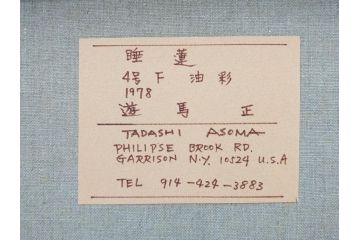 睡蓮
4号 F 油彩
1978
遊馬 正
TADASHI ASOMA
PHILIPSE BROOK RD.
GARRISON N.Y. 10524 U.S.A
TEL 914-424-3883